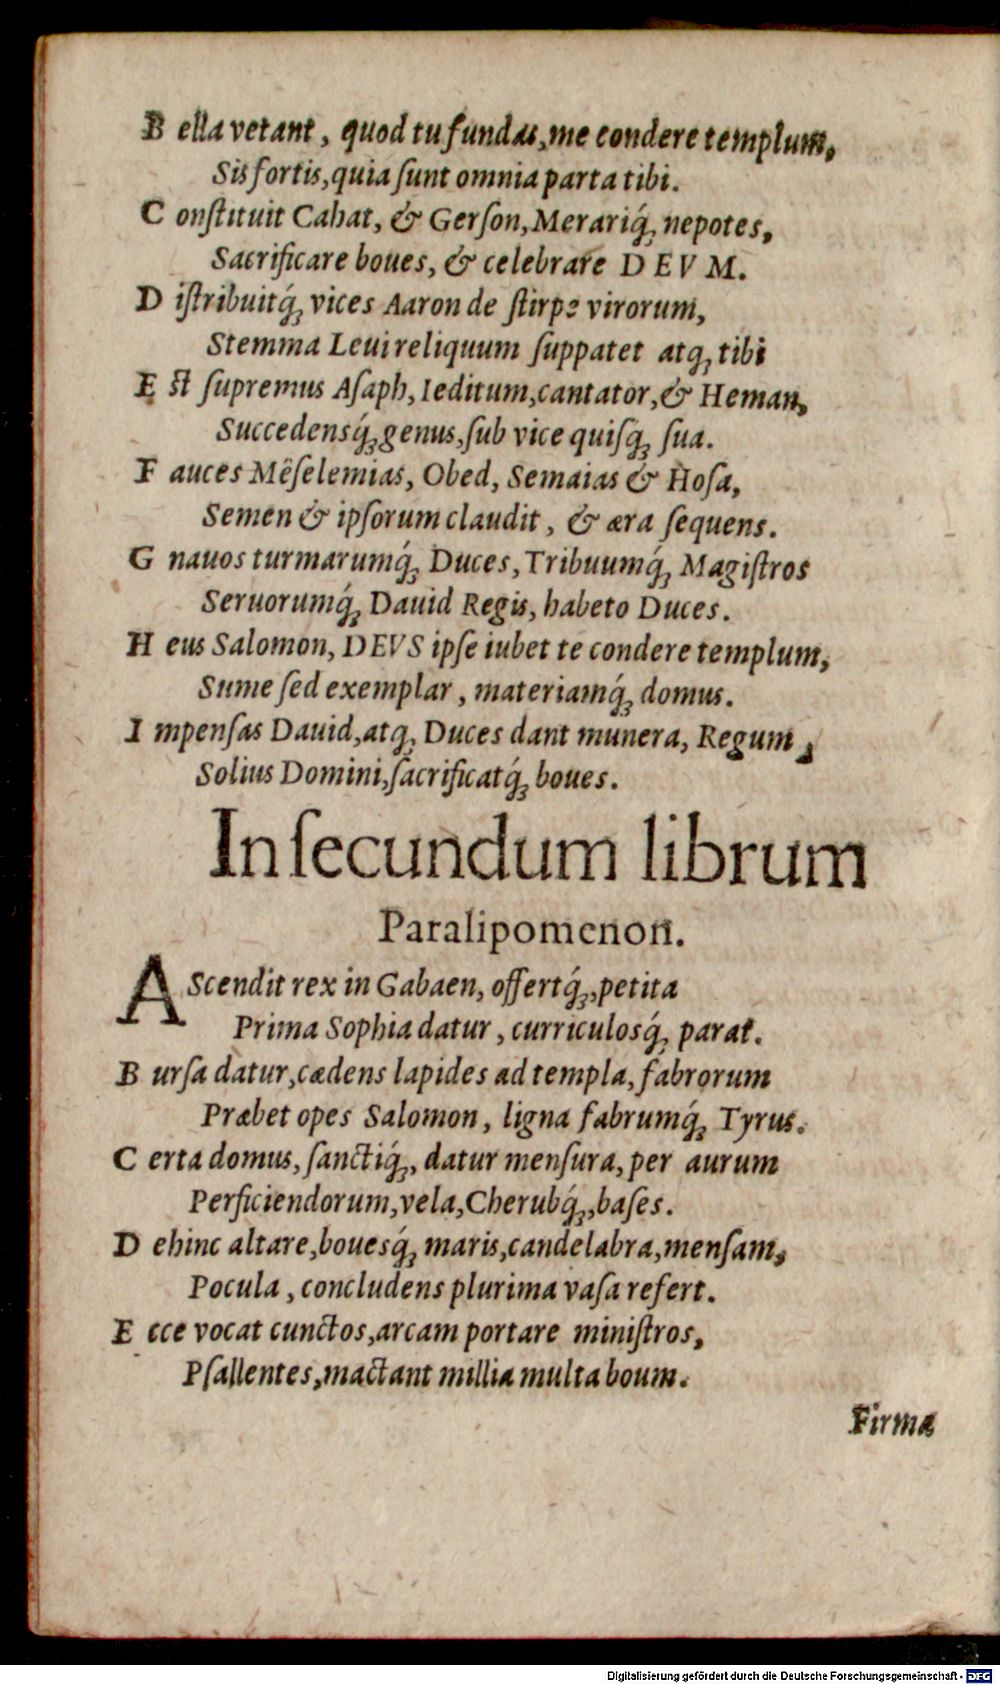 B ella vetant, quod tu fundas, me condere templum,
Sis fortis, quia ſunt omnia parta tibi.
C onſtituit Cahat, & Gerſon, Merariq́ꝫ nepotes,
Sacrificare boues, & celebrare DEVM.
D iſtribuitq́ꝫ vices Aaron de ſtirpe virorum,
Stemma Leui reliquum ſuppatet atqꝫ tibi
E ſt ſupremus Aſaph, Ieditum, cantator, & Heman,
Succedensq́ꝫ genus, ſub vice quiſqꝫ ſua.
F auces Mêſelemias, Obed, Semaias & Hoſa,
Semen & ipſorum claudit, & æra ſequens.
G nauos turmarumq́ꝫ Duces, Tribuumq́ꝫ Magiſtros
Seruorumq́ꝫ Dauid Regis, habeto Duces.
H eus Salomon, DEVS ipſe iubet te condere templum,
Sume ſed exemplar, materiamq́ꝫ domus.
I mpenſas Dauid, atqꝫ Duces dant munera, Regum,
Solius Domini, ſacrificatq́ꝫ boues.
In ſecundum librum
Paralipomenon.
AScendit rex in Gabaen, offertq́ꝫ, petita
Prima Sophia datur, curriculosq́ꝫ parat.
B urſa datur, cædens lapides ad templa, fabrorum
Præbet opes Salomon, ligna fabrumq́ꝫ Tyrus.
C erta domus, ſanctiq́ꝫ, datur menſura, per aurum
Perficiendorum, vela, Cherubq́ꝫ, baſes.
D ehinc altare, bouesq́ꝫ maris, candelabra, menſam,
Pocula, concludens plurima vaſa refert.
E cce vocat cunctos, arcam portare miniſtros,
Pſallentes, mactant millia multa boum.
Firma
Digitalisierung gefördert durch die Deutsche Forschungsgemeinschaft - DFG